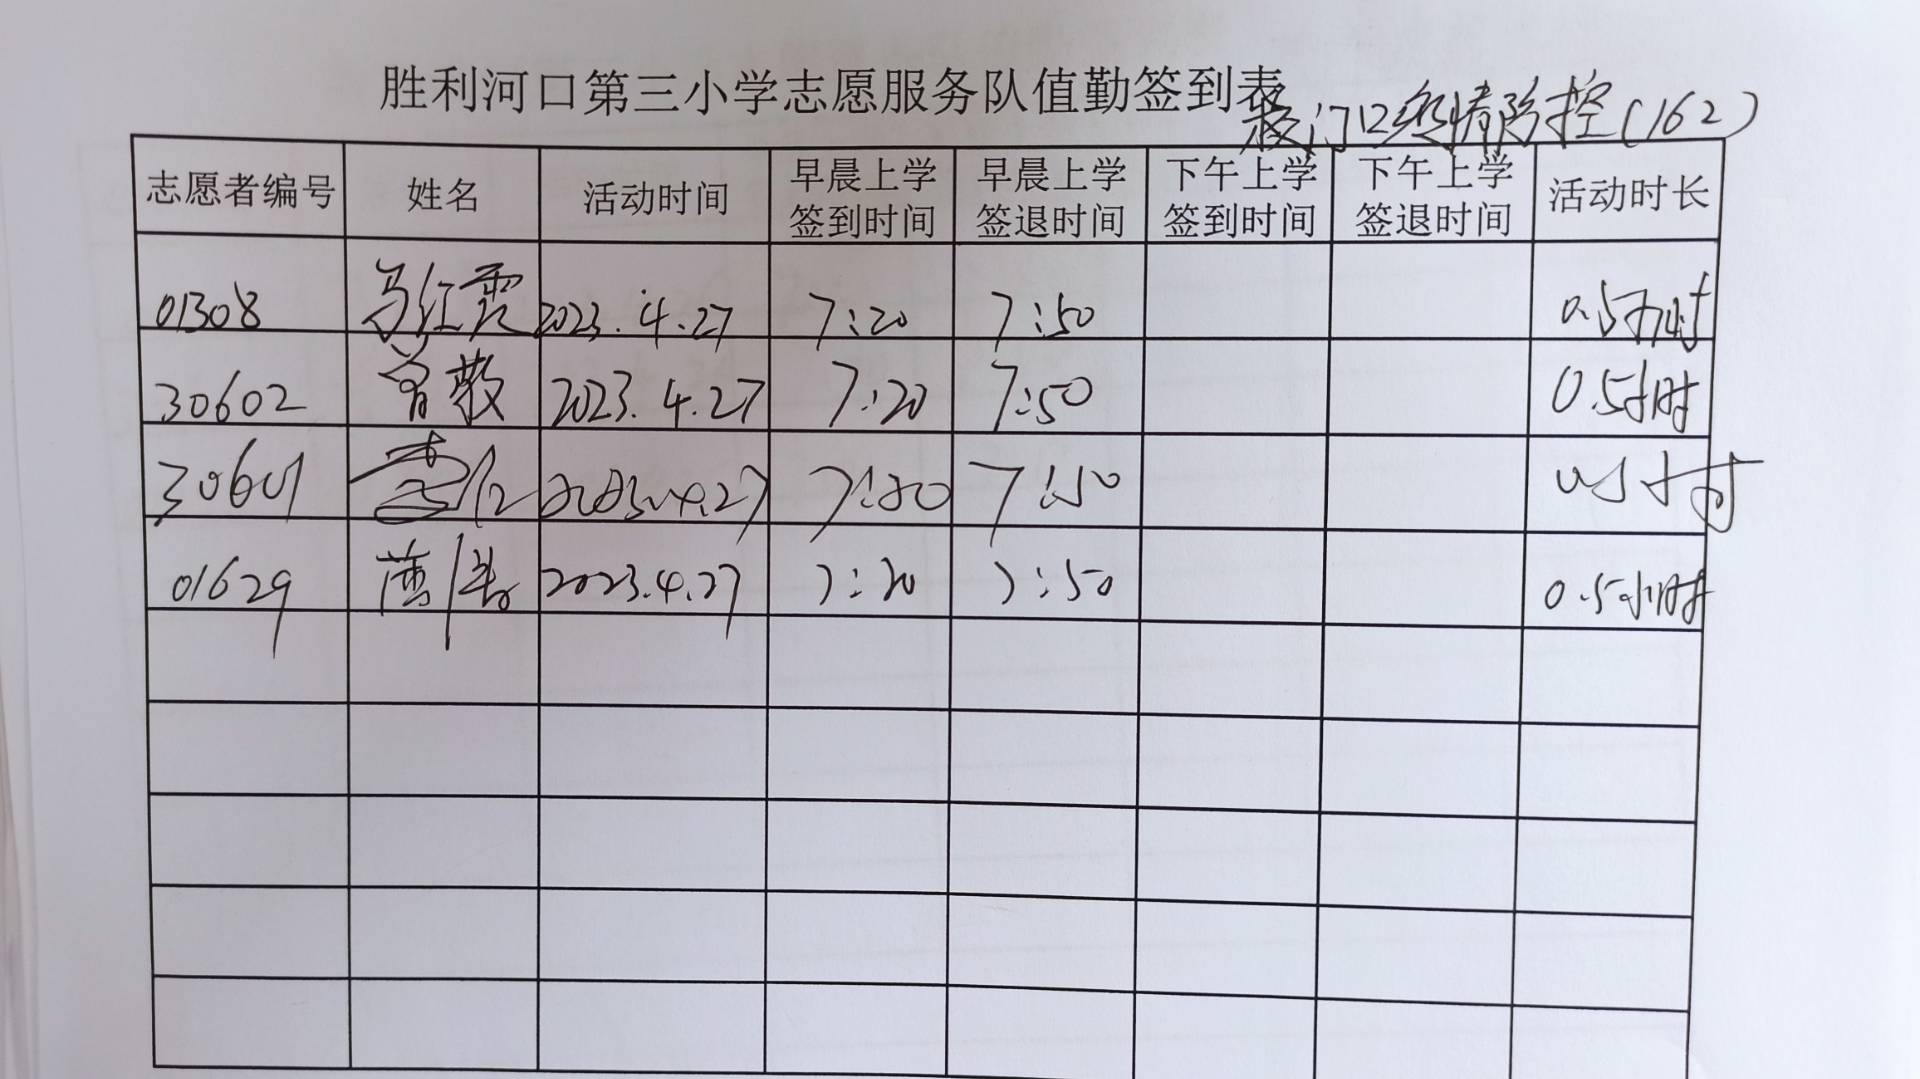 胜利河口第三小学志愿服务队值勤签到表
校门口疫情防控(162)
志愿者编号 姓名 活动时间 早晨上学签到时间 早晨上学签退时间 下午上学签到时间 下午上学签退时间 活动时长
01308 马红霞 2023.4.27 7:20 7:50 0.5小时
30602 曾敬 2023.4.27 7:20 7:50 0.5小时
30601 2023.4.27 7:20 7:50 0.5小时
01629 2023.4.27 7:20 7:50 0.5小时